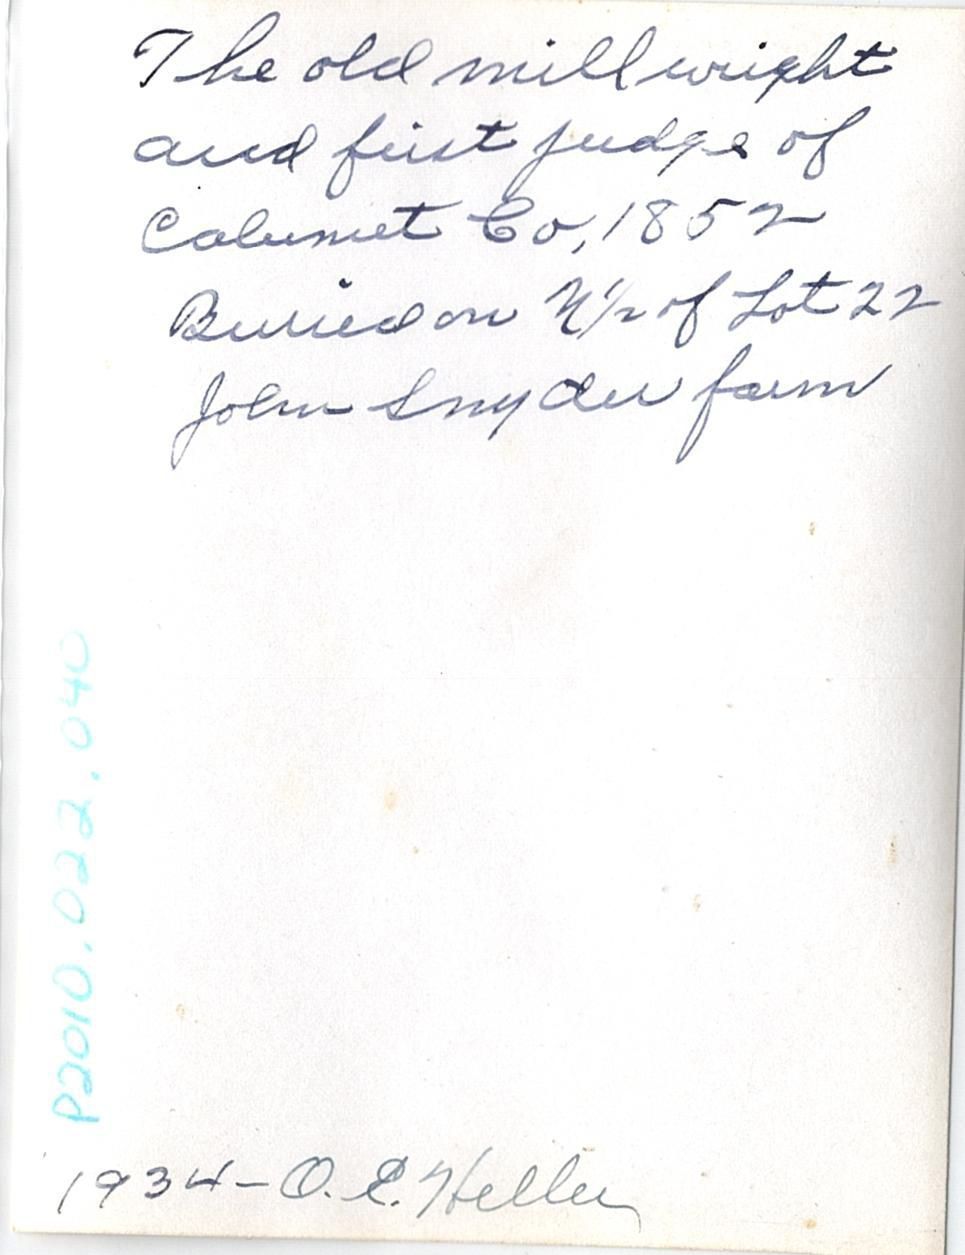 The old mill wright
and first judge of
Calumet Co, 1852
Buried on N 1/2 of Lot 22
John Snyder farm
P2010.022.040
1934 - O. E. Heller